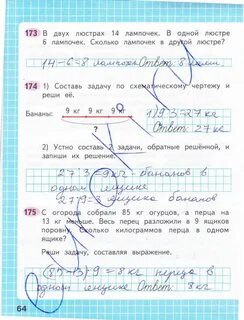 173 В двух люстрах 14 лампочек. В одной люстре
6 лампочек. Сколько лампочек в другой люстре?
14-6=8 Ответ: 8
174 1) Составь задачу по схематическому чертежу и
реши её.
9 кг 9 кг 9 кг
Бананы:
1) 9·3=27кг
?
Ответ: 27 кг
2) Устно составь 2 задачи, обратные решённой, и
запиши их решение.
27:3=9кг - бананов в
одном ящике
27:9=3 ящика бананов
175 С огорода собрали 85 кг огурцов, а перца на
13 кг меньше. Весь перец разложили в 9 ящиков
поровну. Сколько килограммов перца в одном
ящике?
Реши задачу, составляя выражение.
(85-13):9=8кг перца в
одном ящике Ответ: 8кг
64